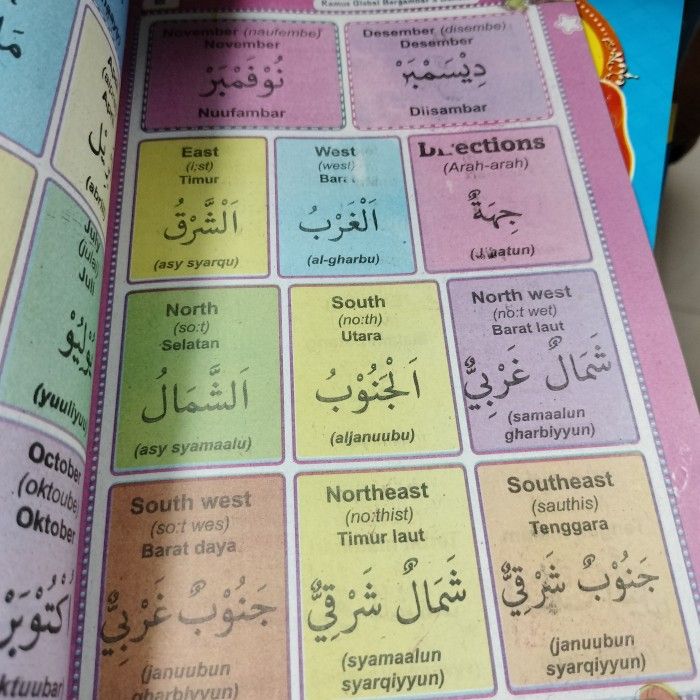 Kamus Global Bergambar 3 Bahasa
November (naufembe)
November
نُوْفَمْبَرْ
Nuufambar
Desember (disembe)
Desember
دِيْسَمْبَرْ
Diisambar
East
(i:st)
Timur
اَلشَّرْقُ
(asy syarqu)
West
(west)
Barat
اَلْغَرْبُ
(al-gharbu)
Directions
(Arah-arah)
جِهَةٌ
(Jihatun)
North
(so:t)
Selatan
اَلشَّمَالُ
(asy syamaalu)
South
(no:th)
Utara
اَلْجَنُوْبُ
(aljanuubu)
North west
(no:t wet)
Barat laut
شَمَالٌ غَرْبِيٌّ
(samaalun
gharbiyyun)
South west
(so:t wes)
Barat daya
جَنُوْبٌ غَرْبِيٌّ
(januubun
gharbiyyun)
Northeast
(no:thist)
Timur laut
شَمَالٌ شَرْقِيٌّ
(syamaalun
syarqiyyun)
Southeast
(sauthis)
Tenggara
جَنُوْبٌ شَرْقِيٌّ
(januubun
syarqiyyun)
July
Juli
(yuuliyuu
October
(oktoube)
Oktober